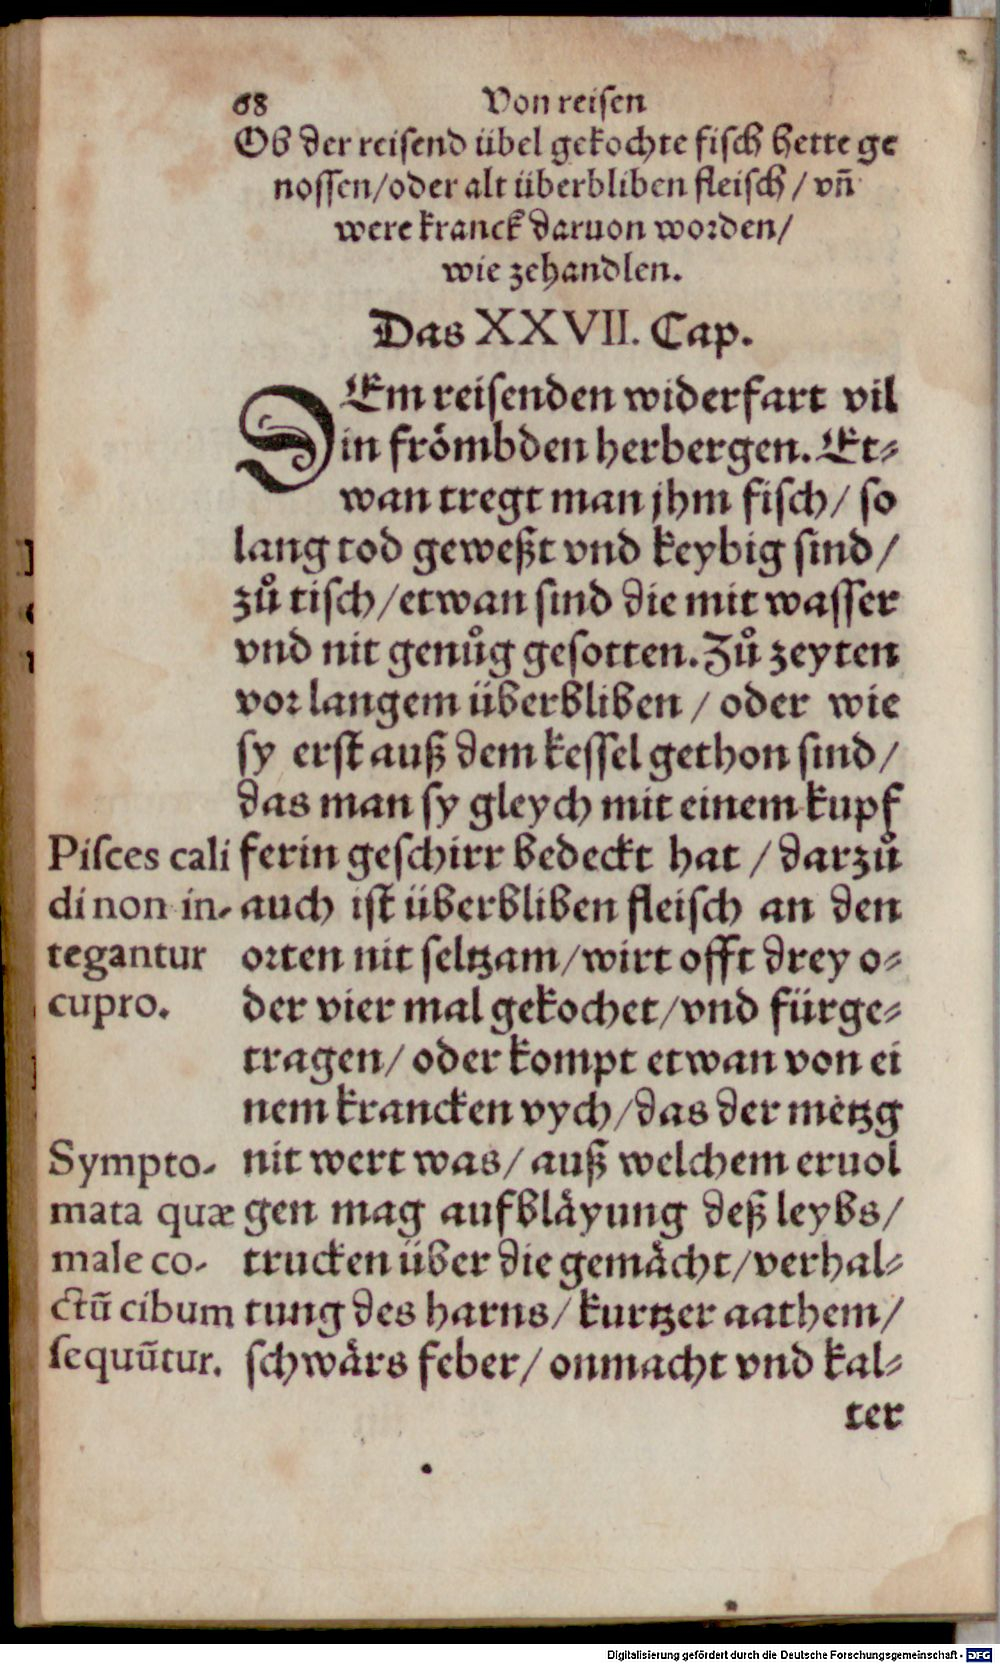 68 Von reisen
Ob der reisend übel gekochte fisch hette ge
nossen/oder alt überbliben fleisch/ vñ
were kranck daruon worden/
wie zehandlen.
Das XXVII. Cap.
DEm reisenden widerfart vil
in frömbden herbergen. Et⸗
wan tregt man jhm fisch/ so
lang tod geweßt vnd keybig sind/
zů tisch/etwan sind die mit wasser
vnd nit genůg gesotten. Zů zeyten
vor langem überbliben/ oder wie
sy erst auß dem kessel gethon sind/
das man sy gleych mit einem kupf
ferin geschirr bedeckt hat/darzů
auch ist überbliben fleisch an den
orten nit seltzam/wirt offt drey o⸗
der vier mal gekochet/vnd fürge⸗
tragen/ oder kompt etwan von ei
nem krancken vych/das der metzg
nit wert was/ auß welchem eruol
gen mag aufbläyung deß leybs/
trucken über die gemächt/verhal⸗
tung des harns/ kurtzer aathem/
schwärs feber/ onmacht vnd kal⸗
ter
Pisces cali
di non in-
tegantur
cupro.
Sympto-
mata quæ
male co-
ctū cibum
sequūtur.
Digitalisierung gefördert durch die Deutsche Forschungsgemeinschaft - DFG